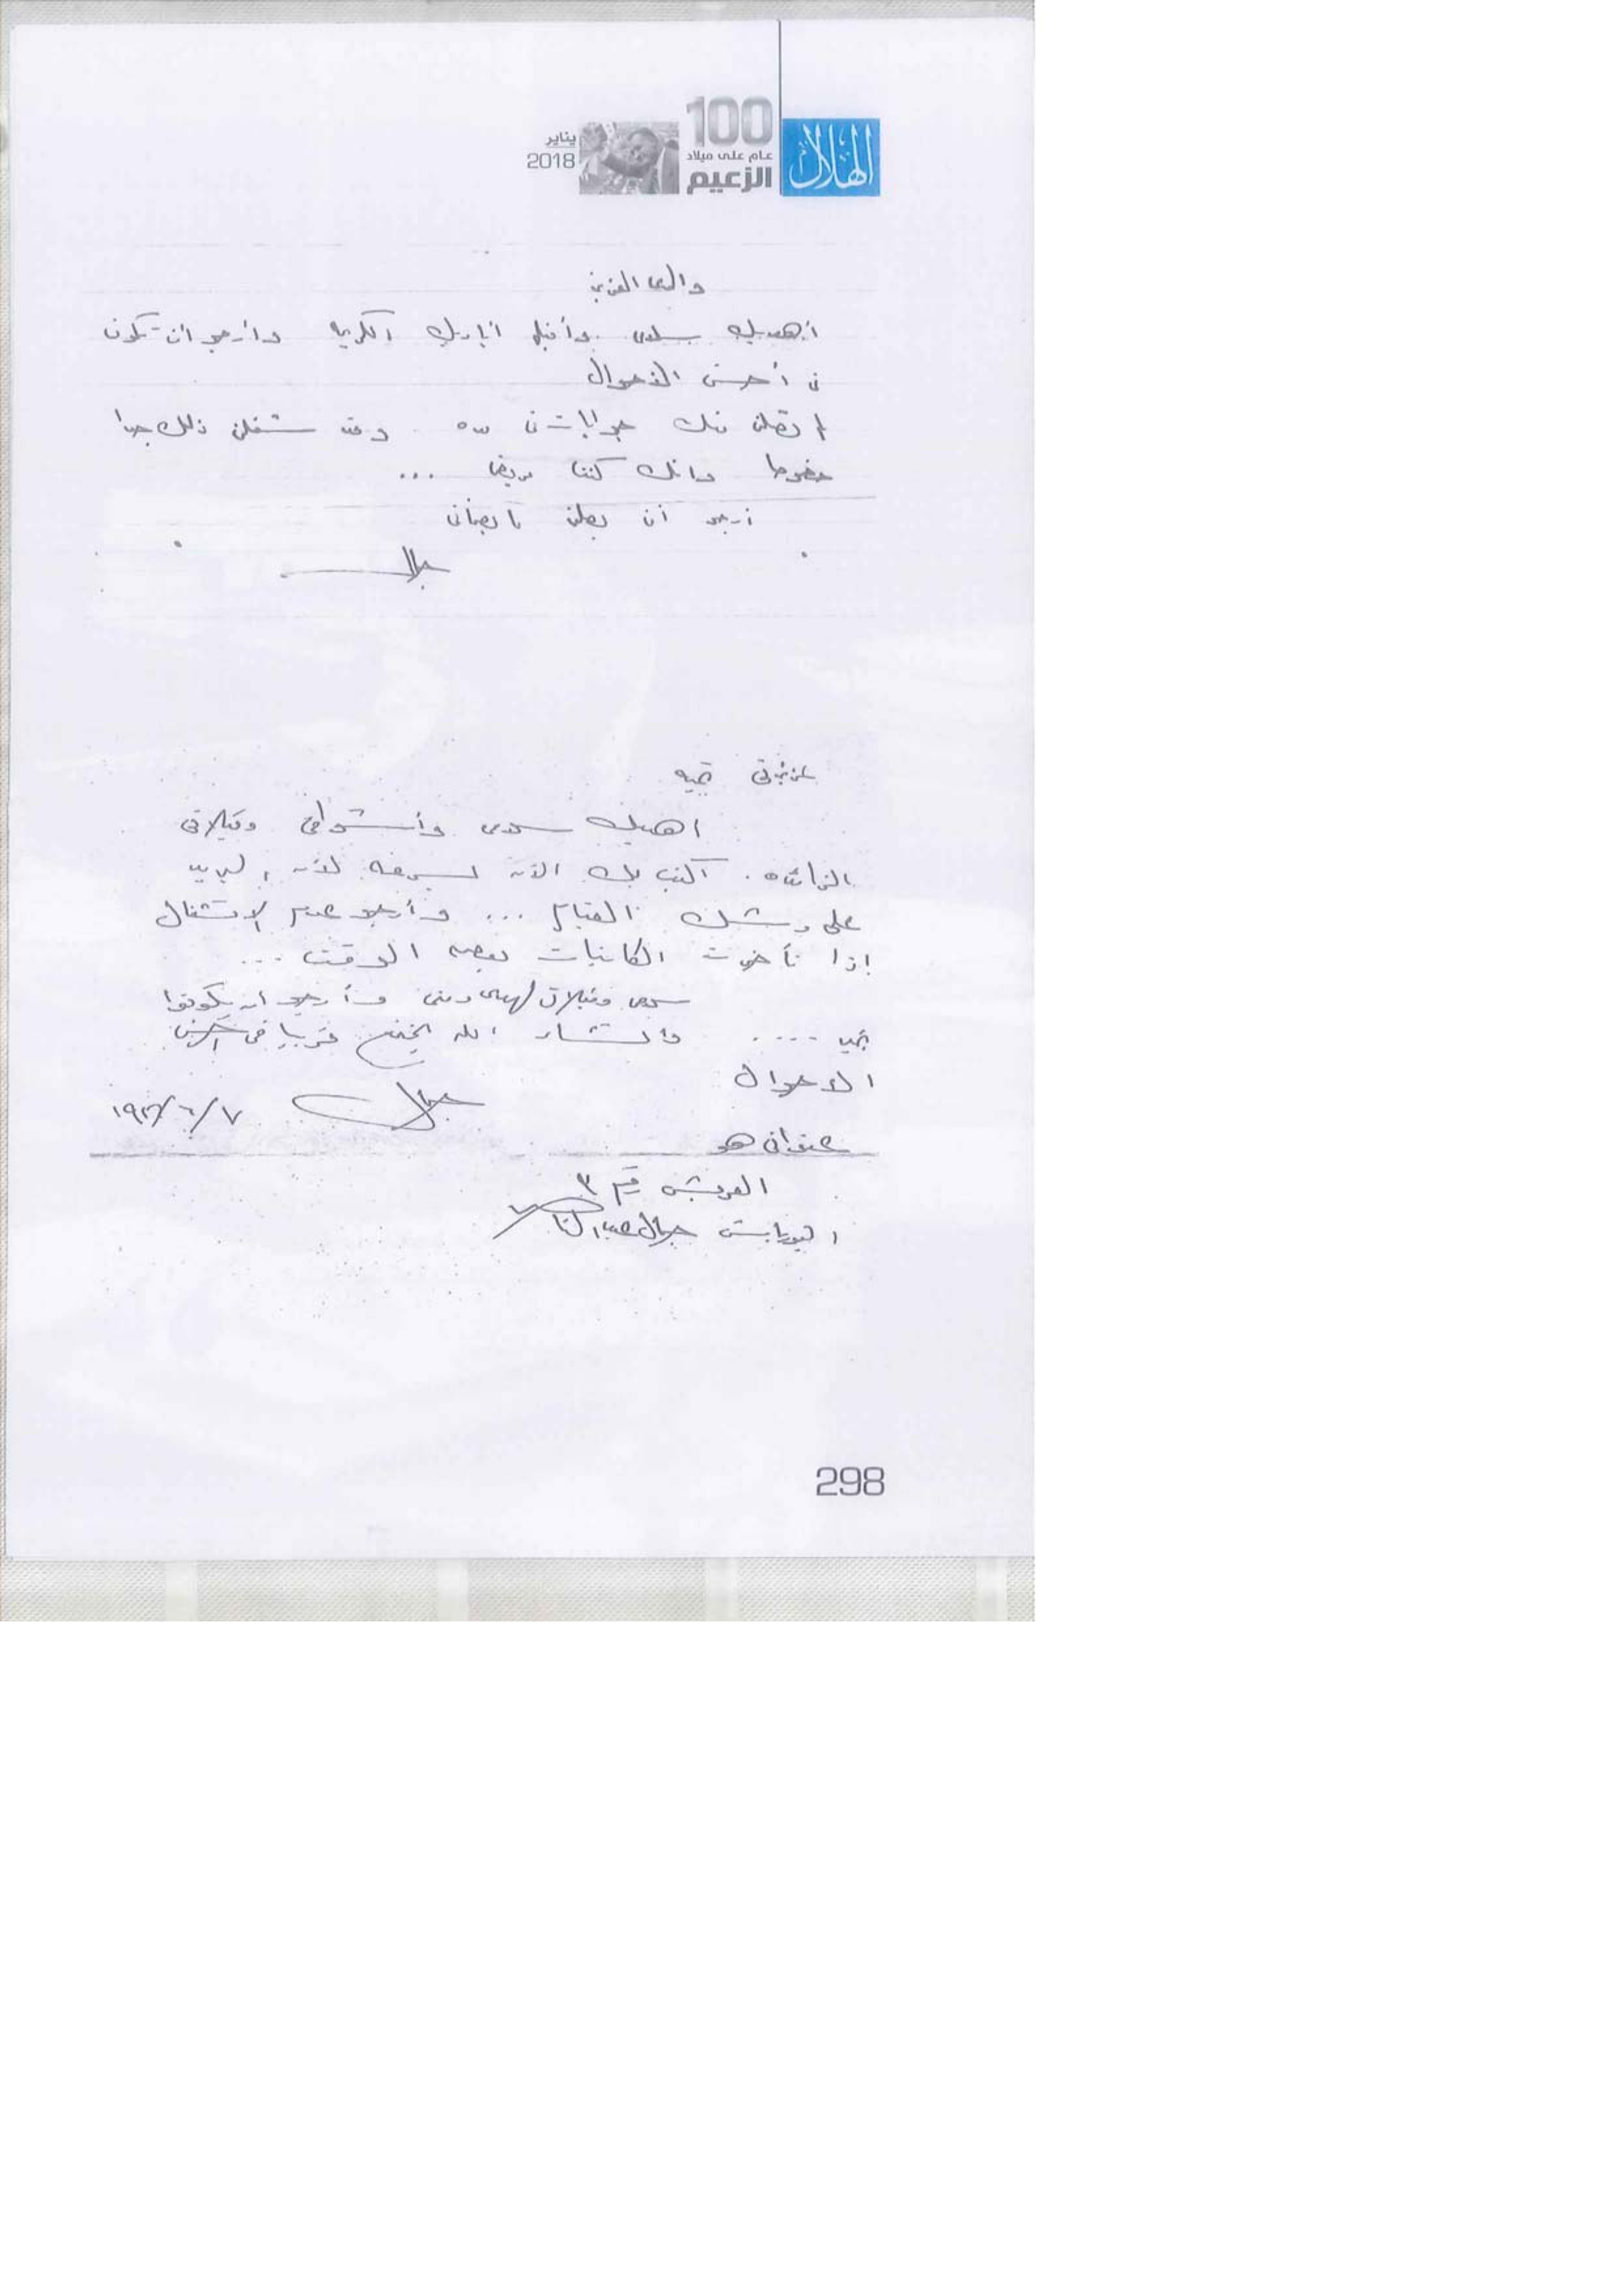 الهلال
100
عام على ميلاد
الزعيم
يناير
2018
والدى العزيز
أهديك سلامى وأقبل أياديك الكريمه وأرجو أن تكون
فى أحسن الأحوال
لم تصلنى منك جوابات من مده وقد شغلنى ذلك جدا
خصوصا وانك كنت مريضا ...
أرجو أن يصلنى ما يطمأنى
جمال
عزيزتى تحيه
اهديك سلامى وأشواقى وقبلاتى
الزائده . اكتب لك الآن بسرعه لأن البريد
على وشك القيام ... وأرجو عدم الانشغال
إذا تأخرت المكاتبات بعض الوقت ...
سلامى وقبلاتى لهدى ومنى وأرجو أن يكونوا
بخير .... وانشاء الله نجتمع قريبا فى أحسن
الاحوال
جمال
عنوانى هو
العريش رقم ٣
اليوزباشى جمال عبد الناصر
298